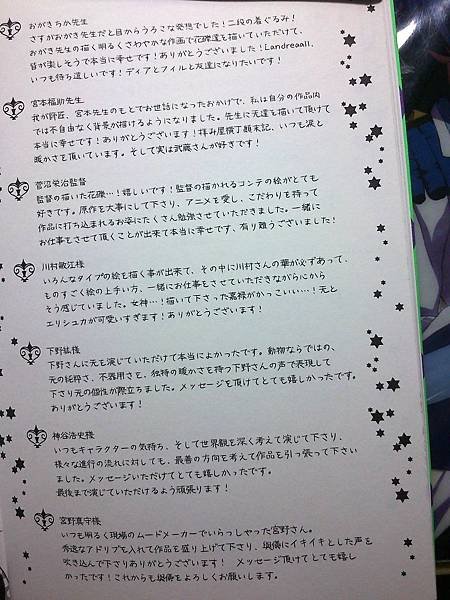 おがきちか先生
さすがおがき先生だと目からうろこな発想でした!二段の着ぐるみ!
おがき先生の描く明るくさわやかな作画で花礫達も描いていただけて、
皆が楽しそうで本当に幸せです!ありがとうございました!Landreaall、
いつも待ち遠しいです!ディアとフィルと友達になりたいです!
宮本福助先生
我が師匠、宮本先生のもとでお世話になったおかげで、私は自分の作品内
では不自由なく背景が描けるようになりました。先生に无達を描いて頂けて
本当に幸せです!ありがとうございます!拝み屋横丁顛末記、いつも涙と
暖かさを頂いています。そして実は武藤さんが好きです!
菅沼栄治監督
監督の描いた花礫…!嬉しいです!監督の描かれるコンテの絵がとても
好きです。原作を大事にして下さり、アニメを愛し、こだわりを持って
作品に打ち込まれるお姿にたくさん勉強させていただきました。一緒に
お仕事をさせて頂くことが出来て本当に幸せです、有り難うございました!
川村敏江様
いろんなタイプの絵を描く事が出来て、その中に川村さんの華が必ずあって、
ものすごく絵の上手い方、一緒にお仕事をさせていただきながら心から
そう感じていました。女神…!描いて下さった嘉禄がかっこいい…!无と
エリシュカが可愛いすぎます!ありがとうございます!
下野紘様
下野さんに无を演じていただけて本当によかったです。動物ならではの、
无の純粋さ、不器用さを、独特の暖かさを持つ下野さんの声で表現して
下さり无の個性が際立ちました。メッセージを頂けてとても嬉しかったです。
ありがとうございます!
神谷浩史様
いつもキャラクターの気持ち、そして世界観を深く考えて演じて下さり、
様々な進行の流れに対しても、最善の方向を考えて作品を引っ張って下さい
ました。メッセージいただけてとても嬉しかったです。
最後まで演じていただけるよう頑張ります!
宮野真守様
いつも明るく現場のムードメーカーでいらっしゃった宮野さん。
秀逸なアドリブも入れて作品を盛り上げて下さり、與儀にイキイキとした声を
吹き込んで下さりありがとうございます! メッセージ頂けてとても嬉し
かったです!これからも與儀をよろしくお願いします。